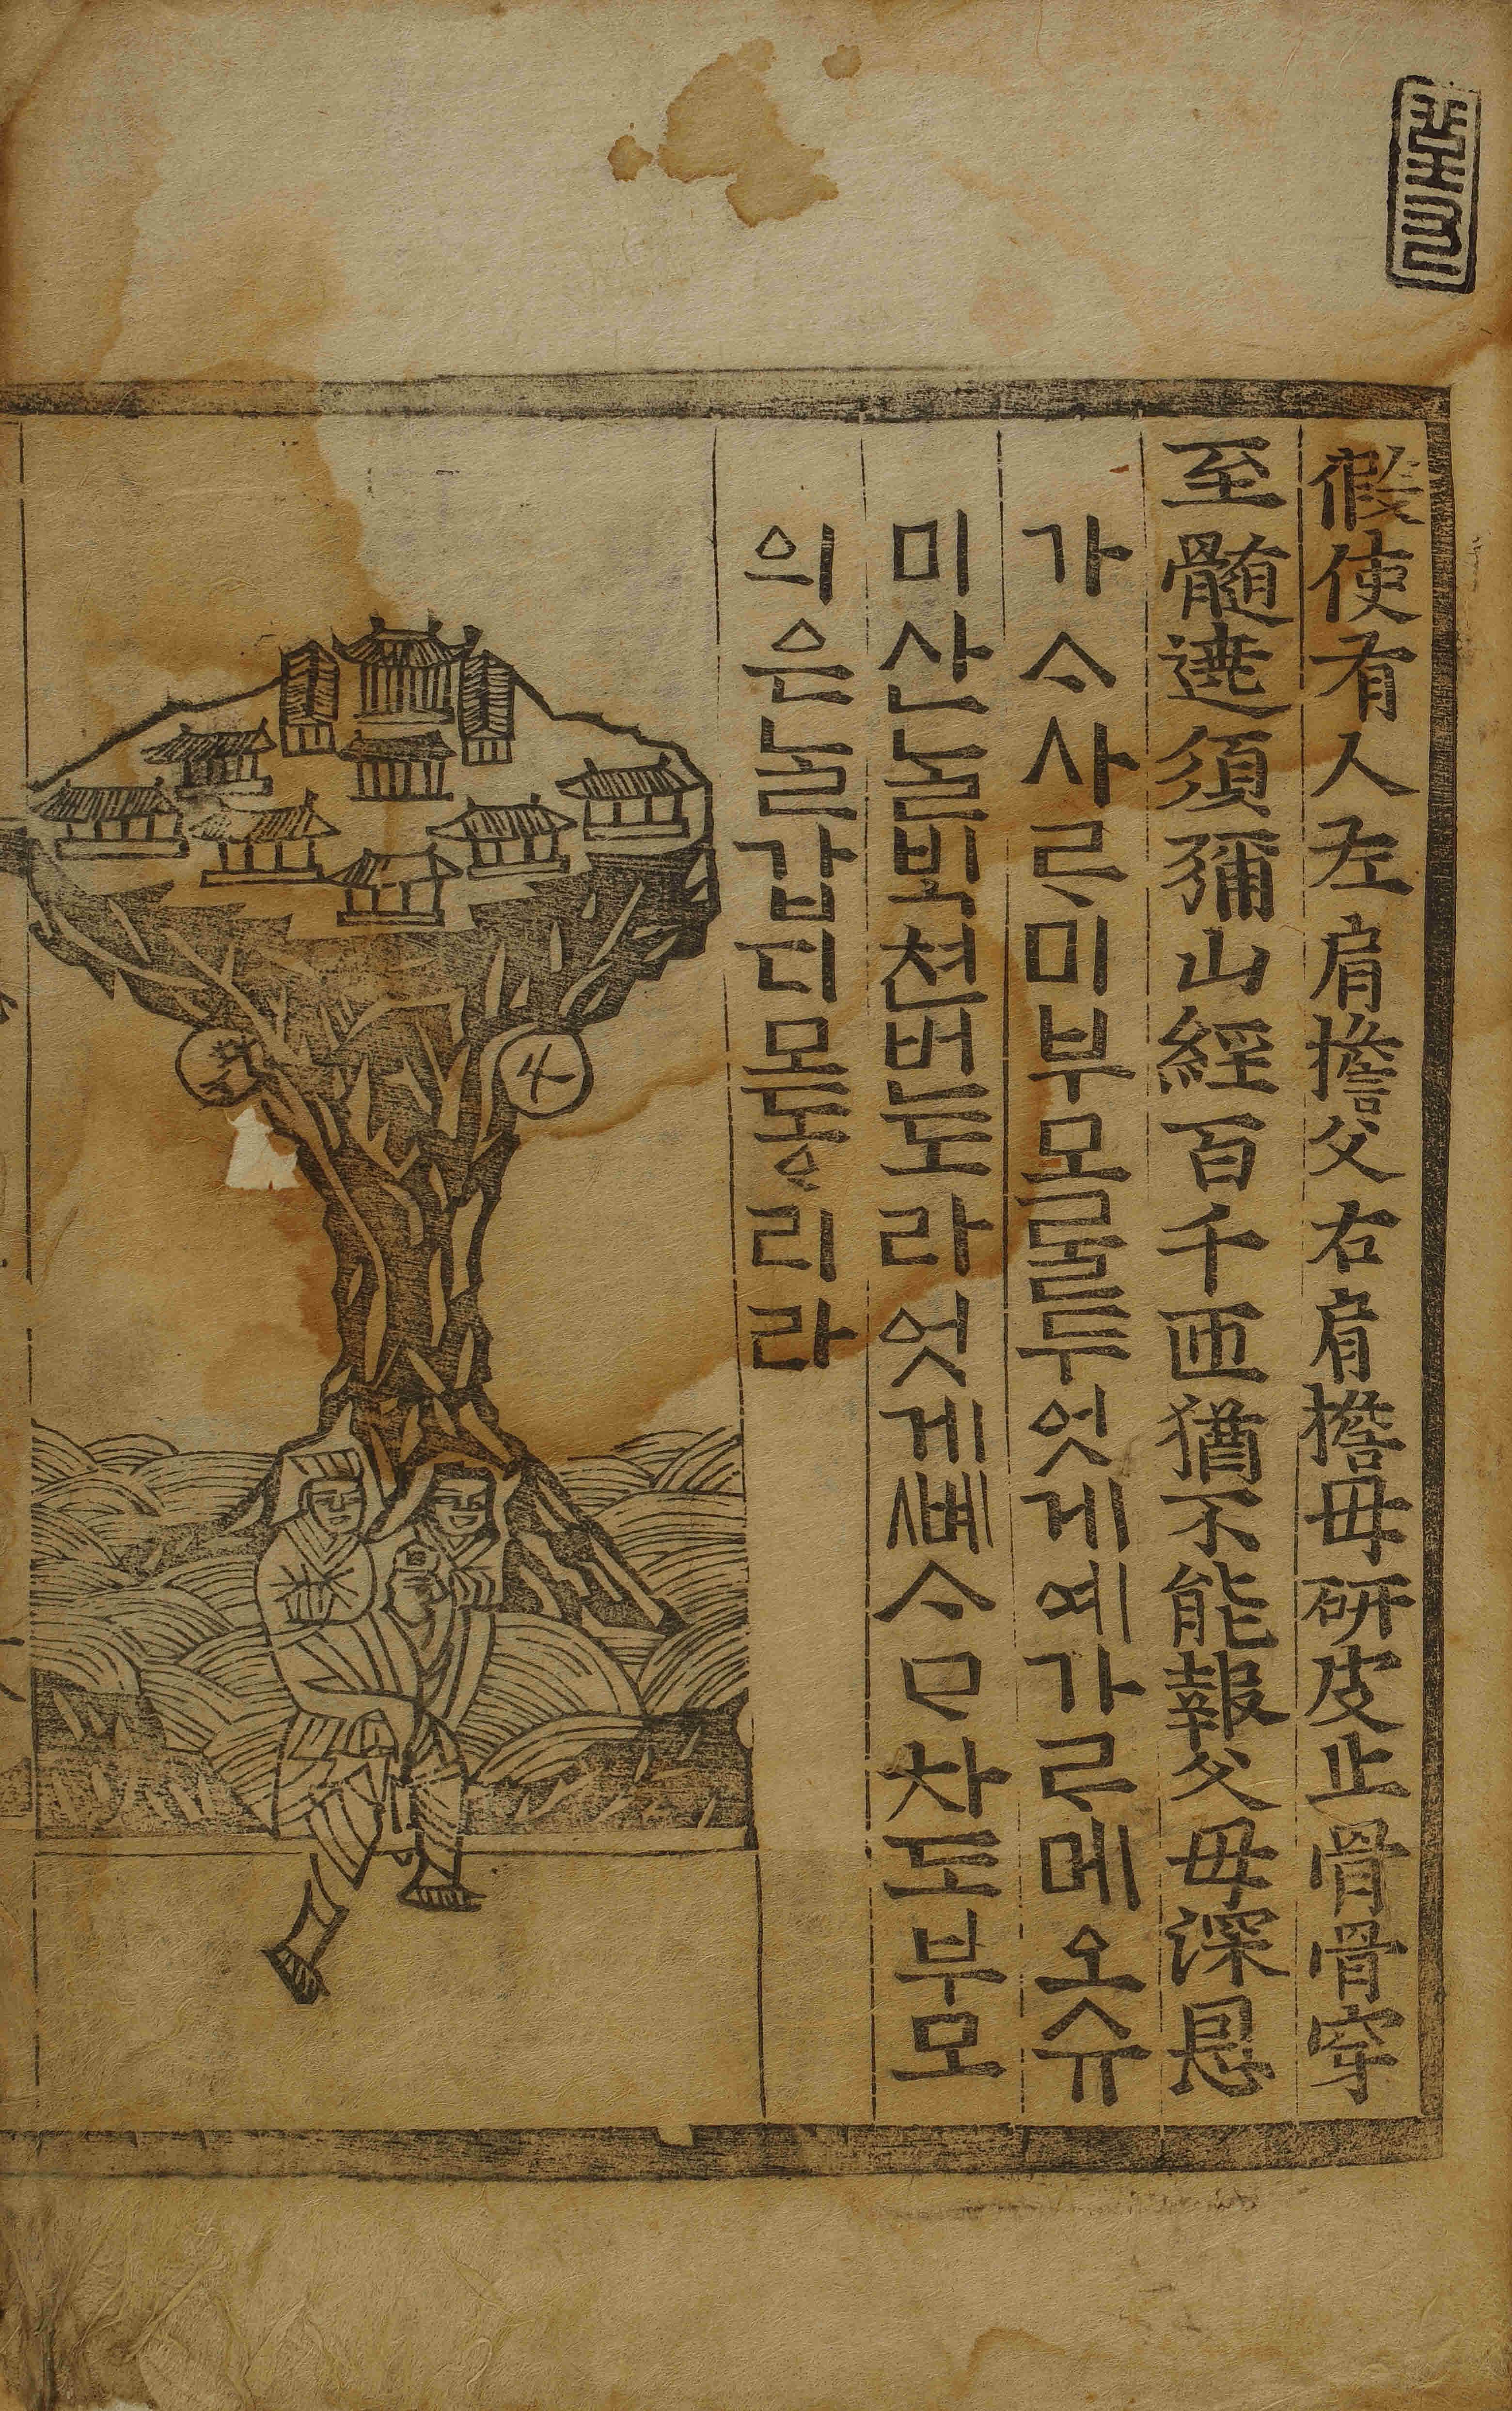 假使有人左肩擔父右肩檐母研皮止骨骨穿
至髓遶須彌山經百千匝猶不能報父母深恩
가ᄉᆞ사ᄅᆞ미부모둘두엇게예가ᄅᆞ메오슈
미산놀ᄇᆡᆨ쳔번도라엇게ᄲᅨᄉᆞᄆᆞ차도부모
의은놀갑디몯ᄒᆞ리라